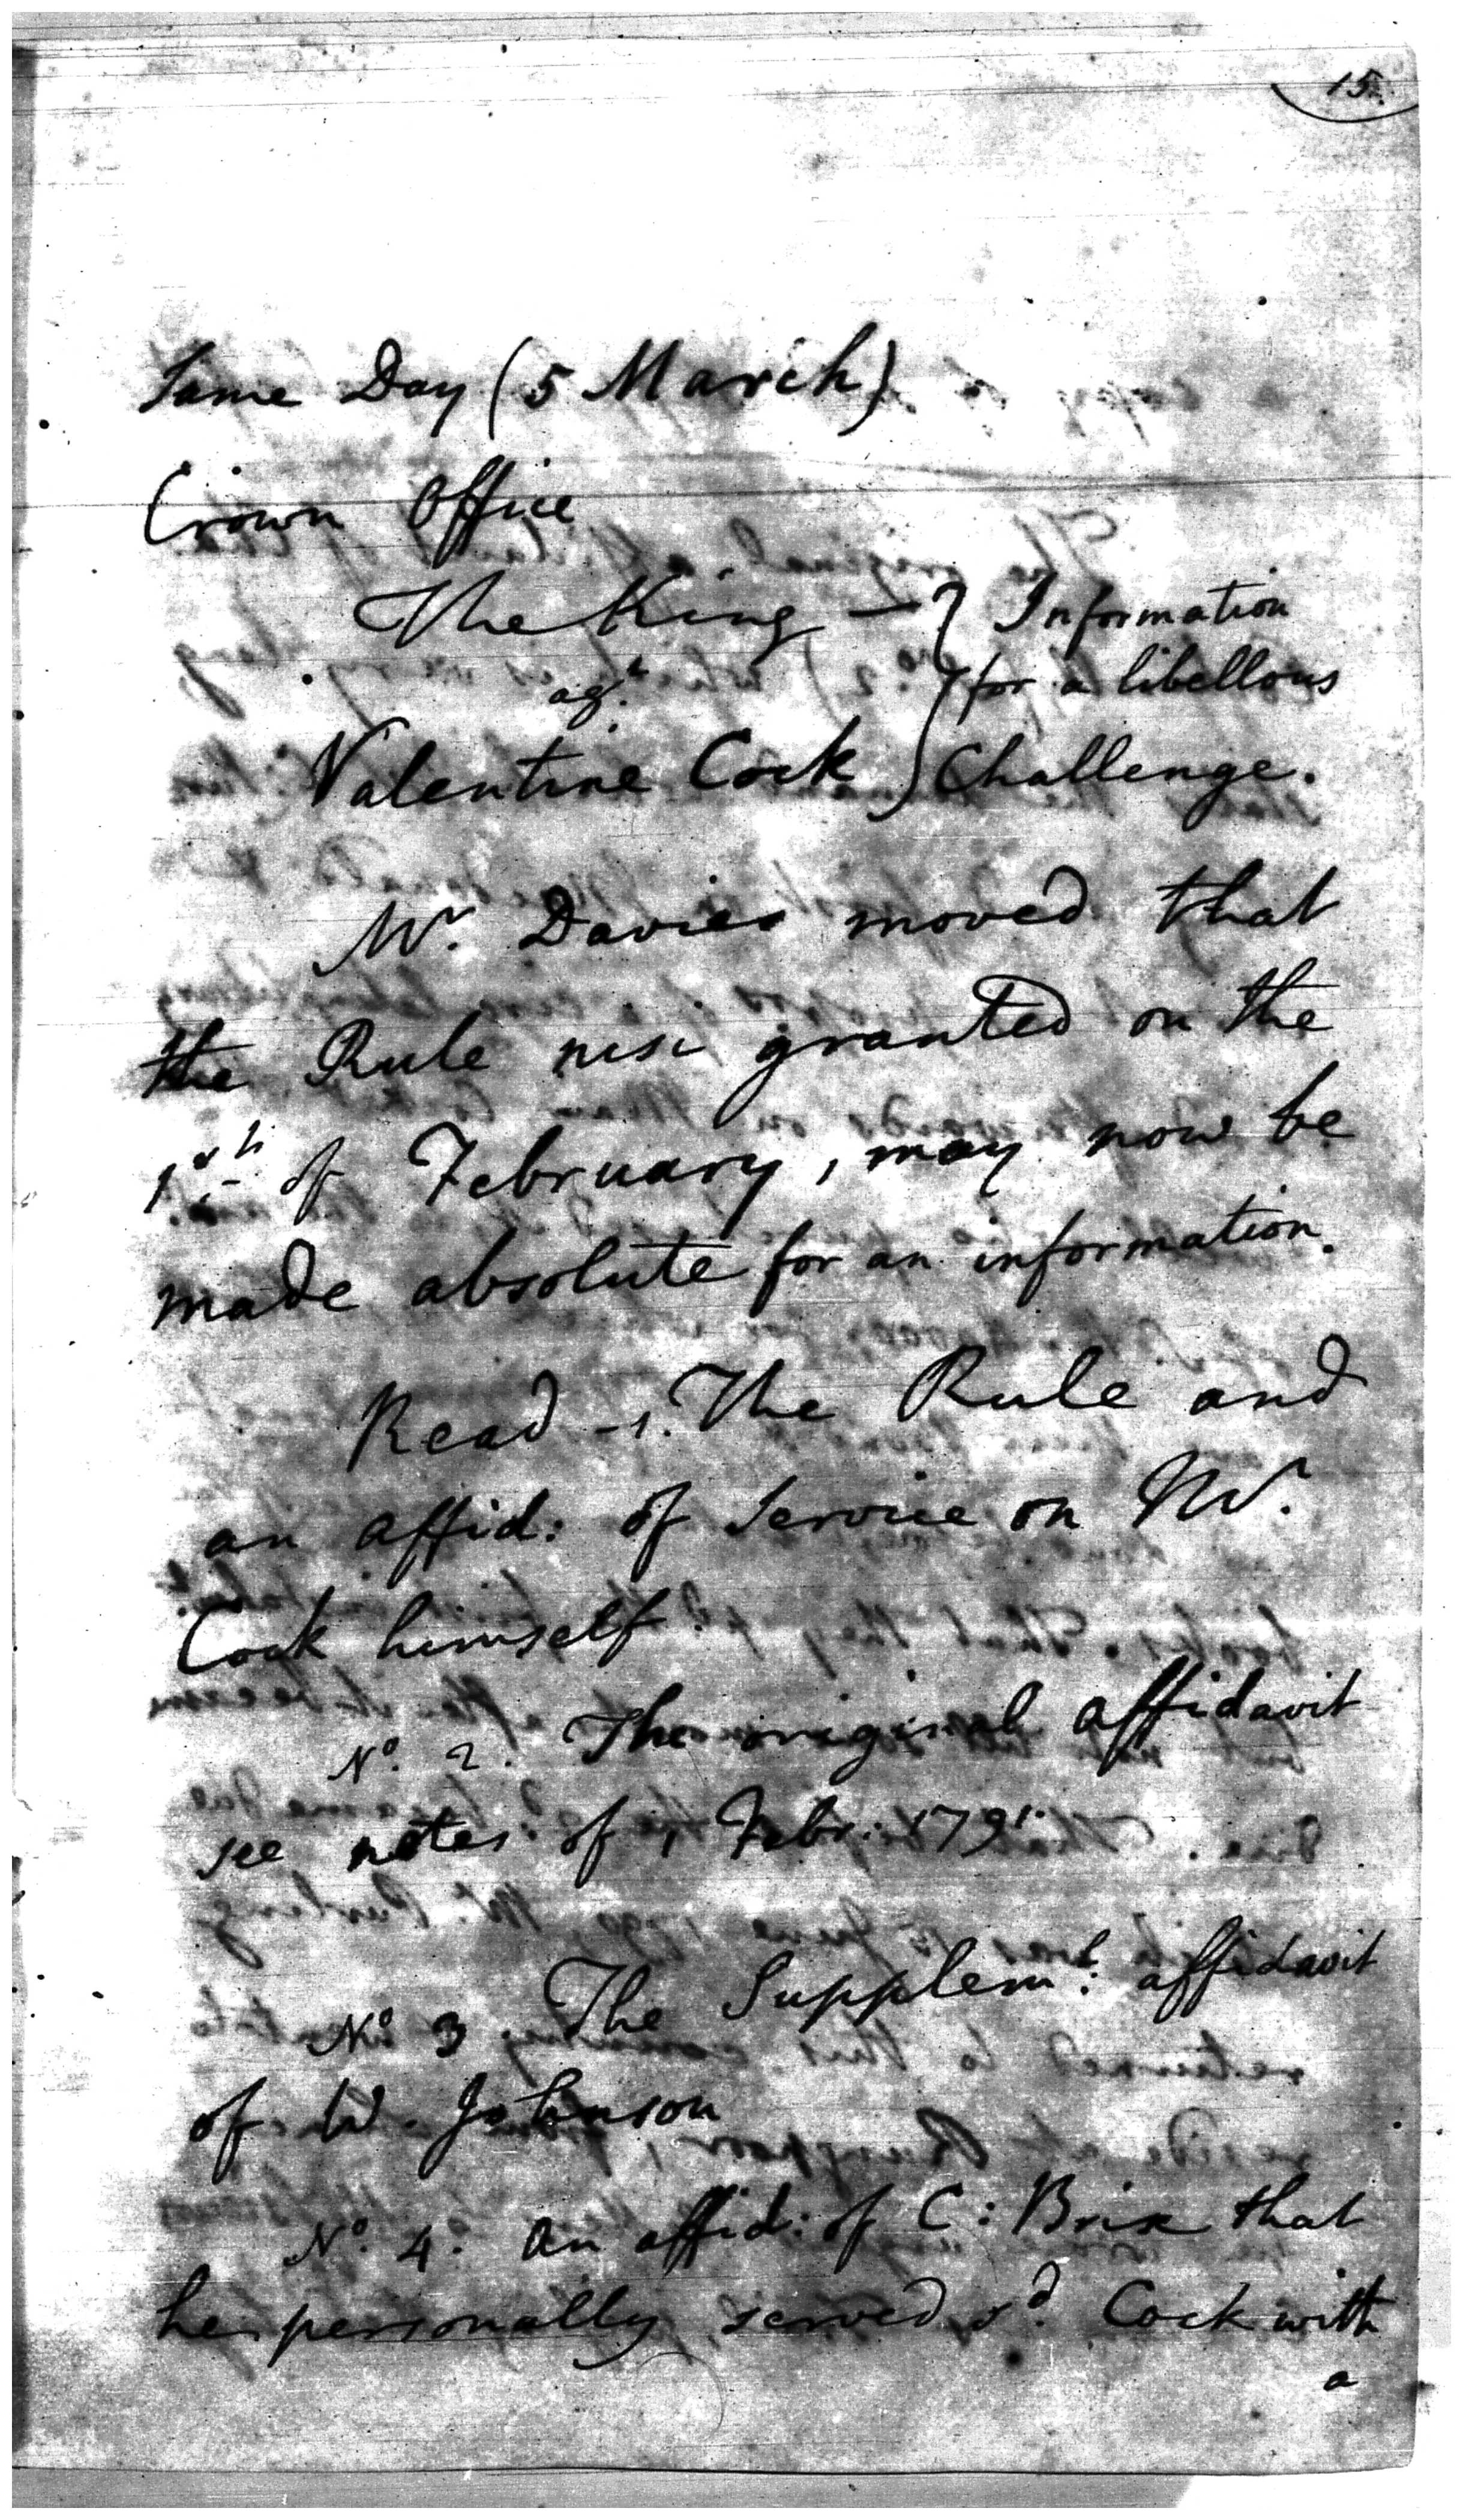 15.
Same Day (5 March)
Crown Office
The King — } Information
agt. } for a libellous
Valentine Cock } Challenge.
Mr. Davies moved that
the Rule nisi granted on the
1st of February, may now be
made absolute for an information.
Read - 1. The Rule and
an affid: of Service on Mr.
Cock himself.
No. 2. The original affidavit
see notes of 1 Febr: 1791.
No 3 The Supplemt. affidavit
of W. Johnson
No. 4. An affid: of C: Brix that
he personally served sd. Cock with
a